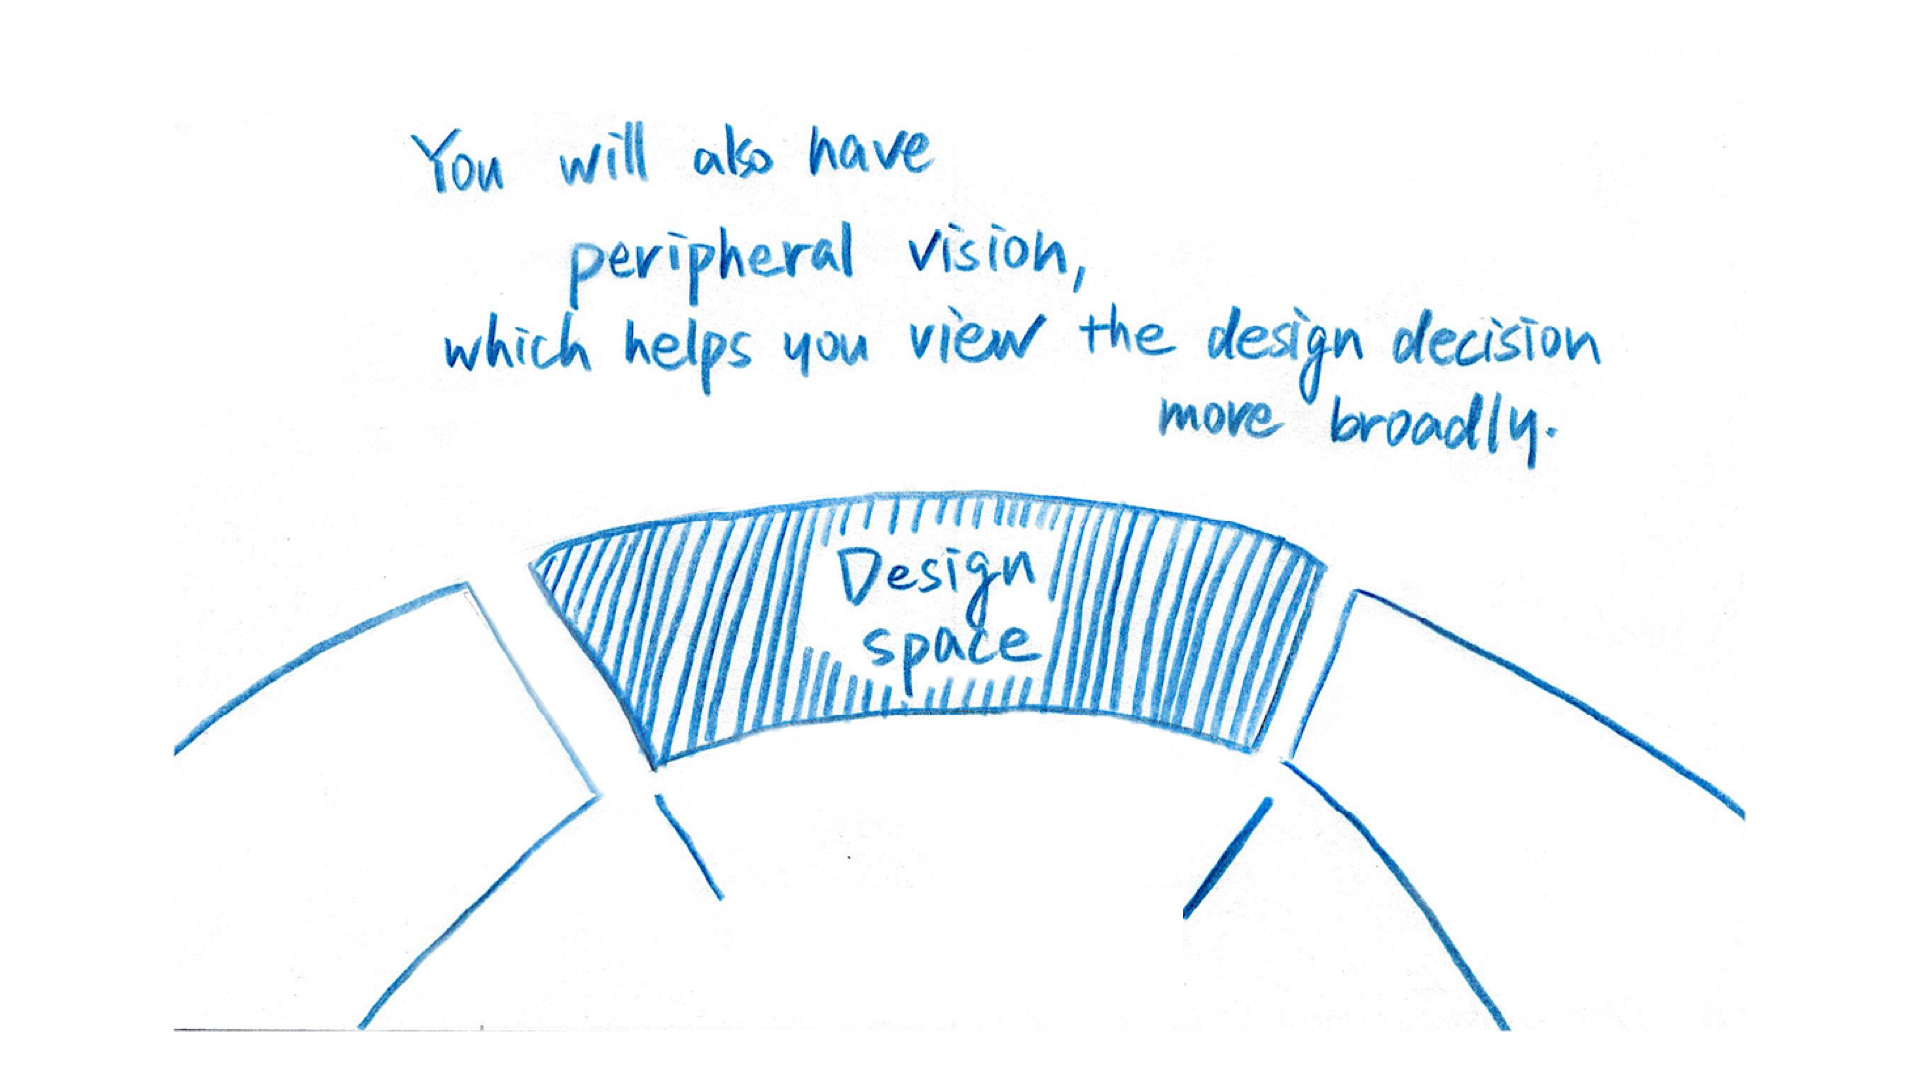 You will also have
peripheral vision,
which helps you view the design decision
more broadly.
Design
space